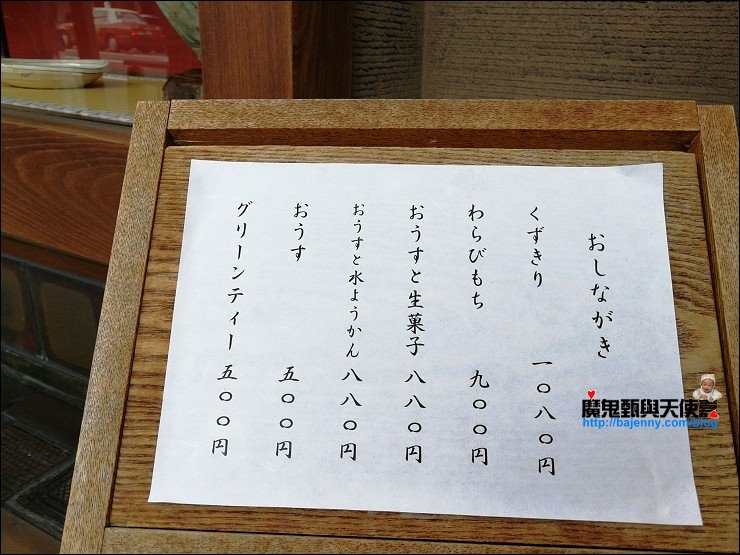 おしながき
くずきり 一〇八〇円
わらびもち 九〇〇円
おうすと生菓子 八八〇円
おうすと水ようかん 八八〇円
おうす 五〇〇円
グリーンティー 五〇〇円
魔鬼甄與天使嘉
http://bajenny.com/blog